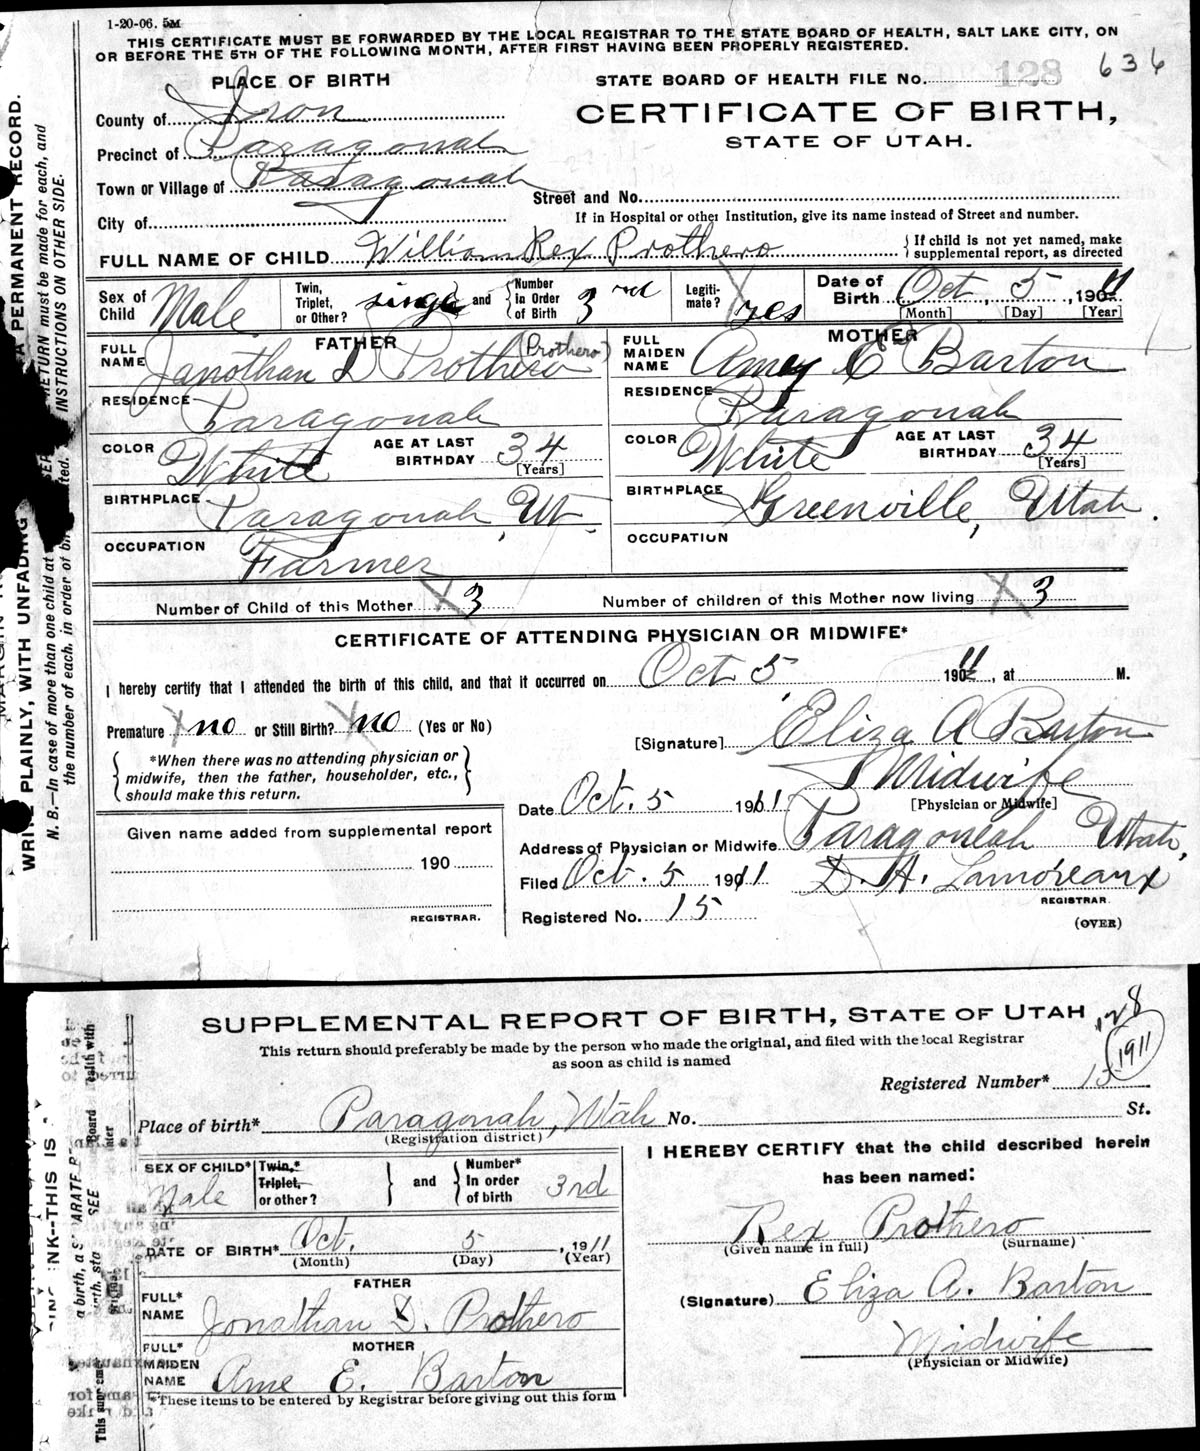 1-20-06. 5M
THIS CERTIFICATE MUST BE FORWARDED BY THE LOCAL REGISTRAR TO THE STATE BOARD OF HEALTH, SALT LAKE CITY, ON
OR BEFORE THE 5TH OF THE FOLLOWING MONTH, AFTER FIRST HAVING BEEN PROPERLY REGISTERED.
PLACE OF BIRTH
STATE BOARD OF HEALTH FILE No. 128 636
County of Iron
CERTIFICATE OF BIRTH,
Precinct of Paragonah
STATE OF UTAH.
Town or Village of Paragonah
Street and No.
City of
If in Hospital or other Institution, give its name instead of Street and number.
FULL NAME OF CHILD William Rex Prothero
{ If child is not yet named, make supplemental report, as directed
Sex of Child Male
Twin, Triplet, or Other? single and { Number in Order of Birth 3rd
Legitimate? yes
Date of Birth Oct, 5, 1911
[Month] [Day] [Year]
FATHER
FULL NAME Janothan D Prothero (Prothero)
RESIDENCE Paragonah
COLOR White AGE AT LAST BIRTHDAY 34 [Years]
BIRTHPLACE Paragonah, Ut.
OCCUPATION Farmer
MOTHER
FULL MAIDEN NAME Amey E Barton
RESIDENCE Paragonah
COLOR White AGE AT LAST BIRTHDAY 34 [Years]
BIRTHPLACE Greenville, Utah.
OCCUPATION
Number of Child of this Mother 3 Number of children of this Mother now living 3
CERTIFICATE OF ATTENDING PHYSICIAN OR MIDWIFE*
I hereby certify that I attended the birth of this child, and that it occurred on Oct 5, 1911, at M.
Premature no or Still Birth? no (Yes or No)
[Signature] Eliza A Barton
Midwife
[Physician or Midwife]
{ *When there was no attending physician or
midwife, then the father, householder, etc.,
should make this return. }
Date Oct. 5 1911
Given name added from supplemental report
190
REGISTRAR.
Address of Physician or Midwife Paragoneah Utah,
Filed Oct. 5 1911 D. H. Lamoreaux
REGISTRAR.
Registered No. 15
(OVER)
WRITE PLAINLY, WITH UNFADING
A PERMANENT RECORD.
N. B.—In case of more than one child at
RETURN must be made for each, and
the number of each, in order of
INSTRUCTIONS ON OTHER SIDE.
SUPPLEMENTAL REPORT OF BIRTH, STATE OF UTAH
128
1911
This return should preferably be made by the person who made the original, and filed with the local Registrar
as soon as child is named
Registered Number* 15
Place of birth* Paragonah, Utah No. St.
(Registration district)
SEX OF CHILD* Male
Twin,* Triplet, or other? } and { Number* In order of birth 3rd
DATE OF BIRTH* Oct. 5, 1911
(Month) (Day) (Year)
FATHER
FULL* NAME Jonathan D. Prothero
MOTHER
FULL* MAIDEN NAME Ame E. Barton
*These items to be entered by Registrar before giving out this form
I HEREBY CERTIFY that the child described herein
has been named:
Rex Prothero
(Given name in full) (Surname)
(Signature) Eliza A. Barton
Midwife
(Physician or Midwife)